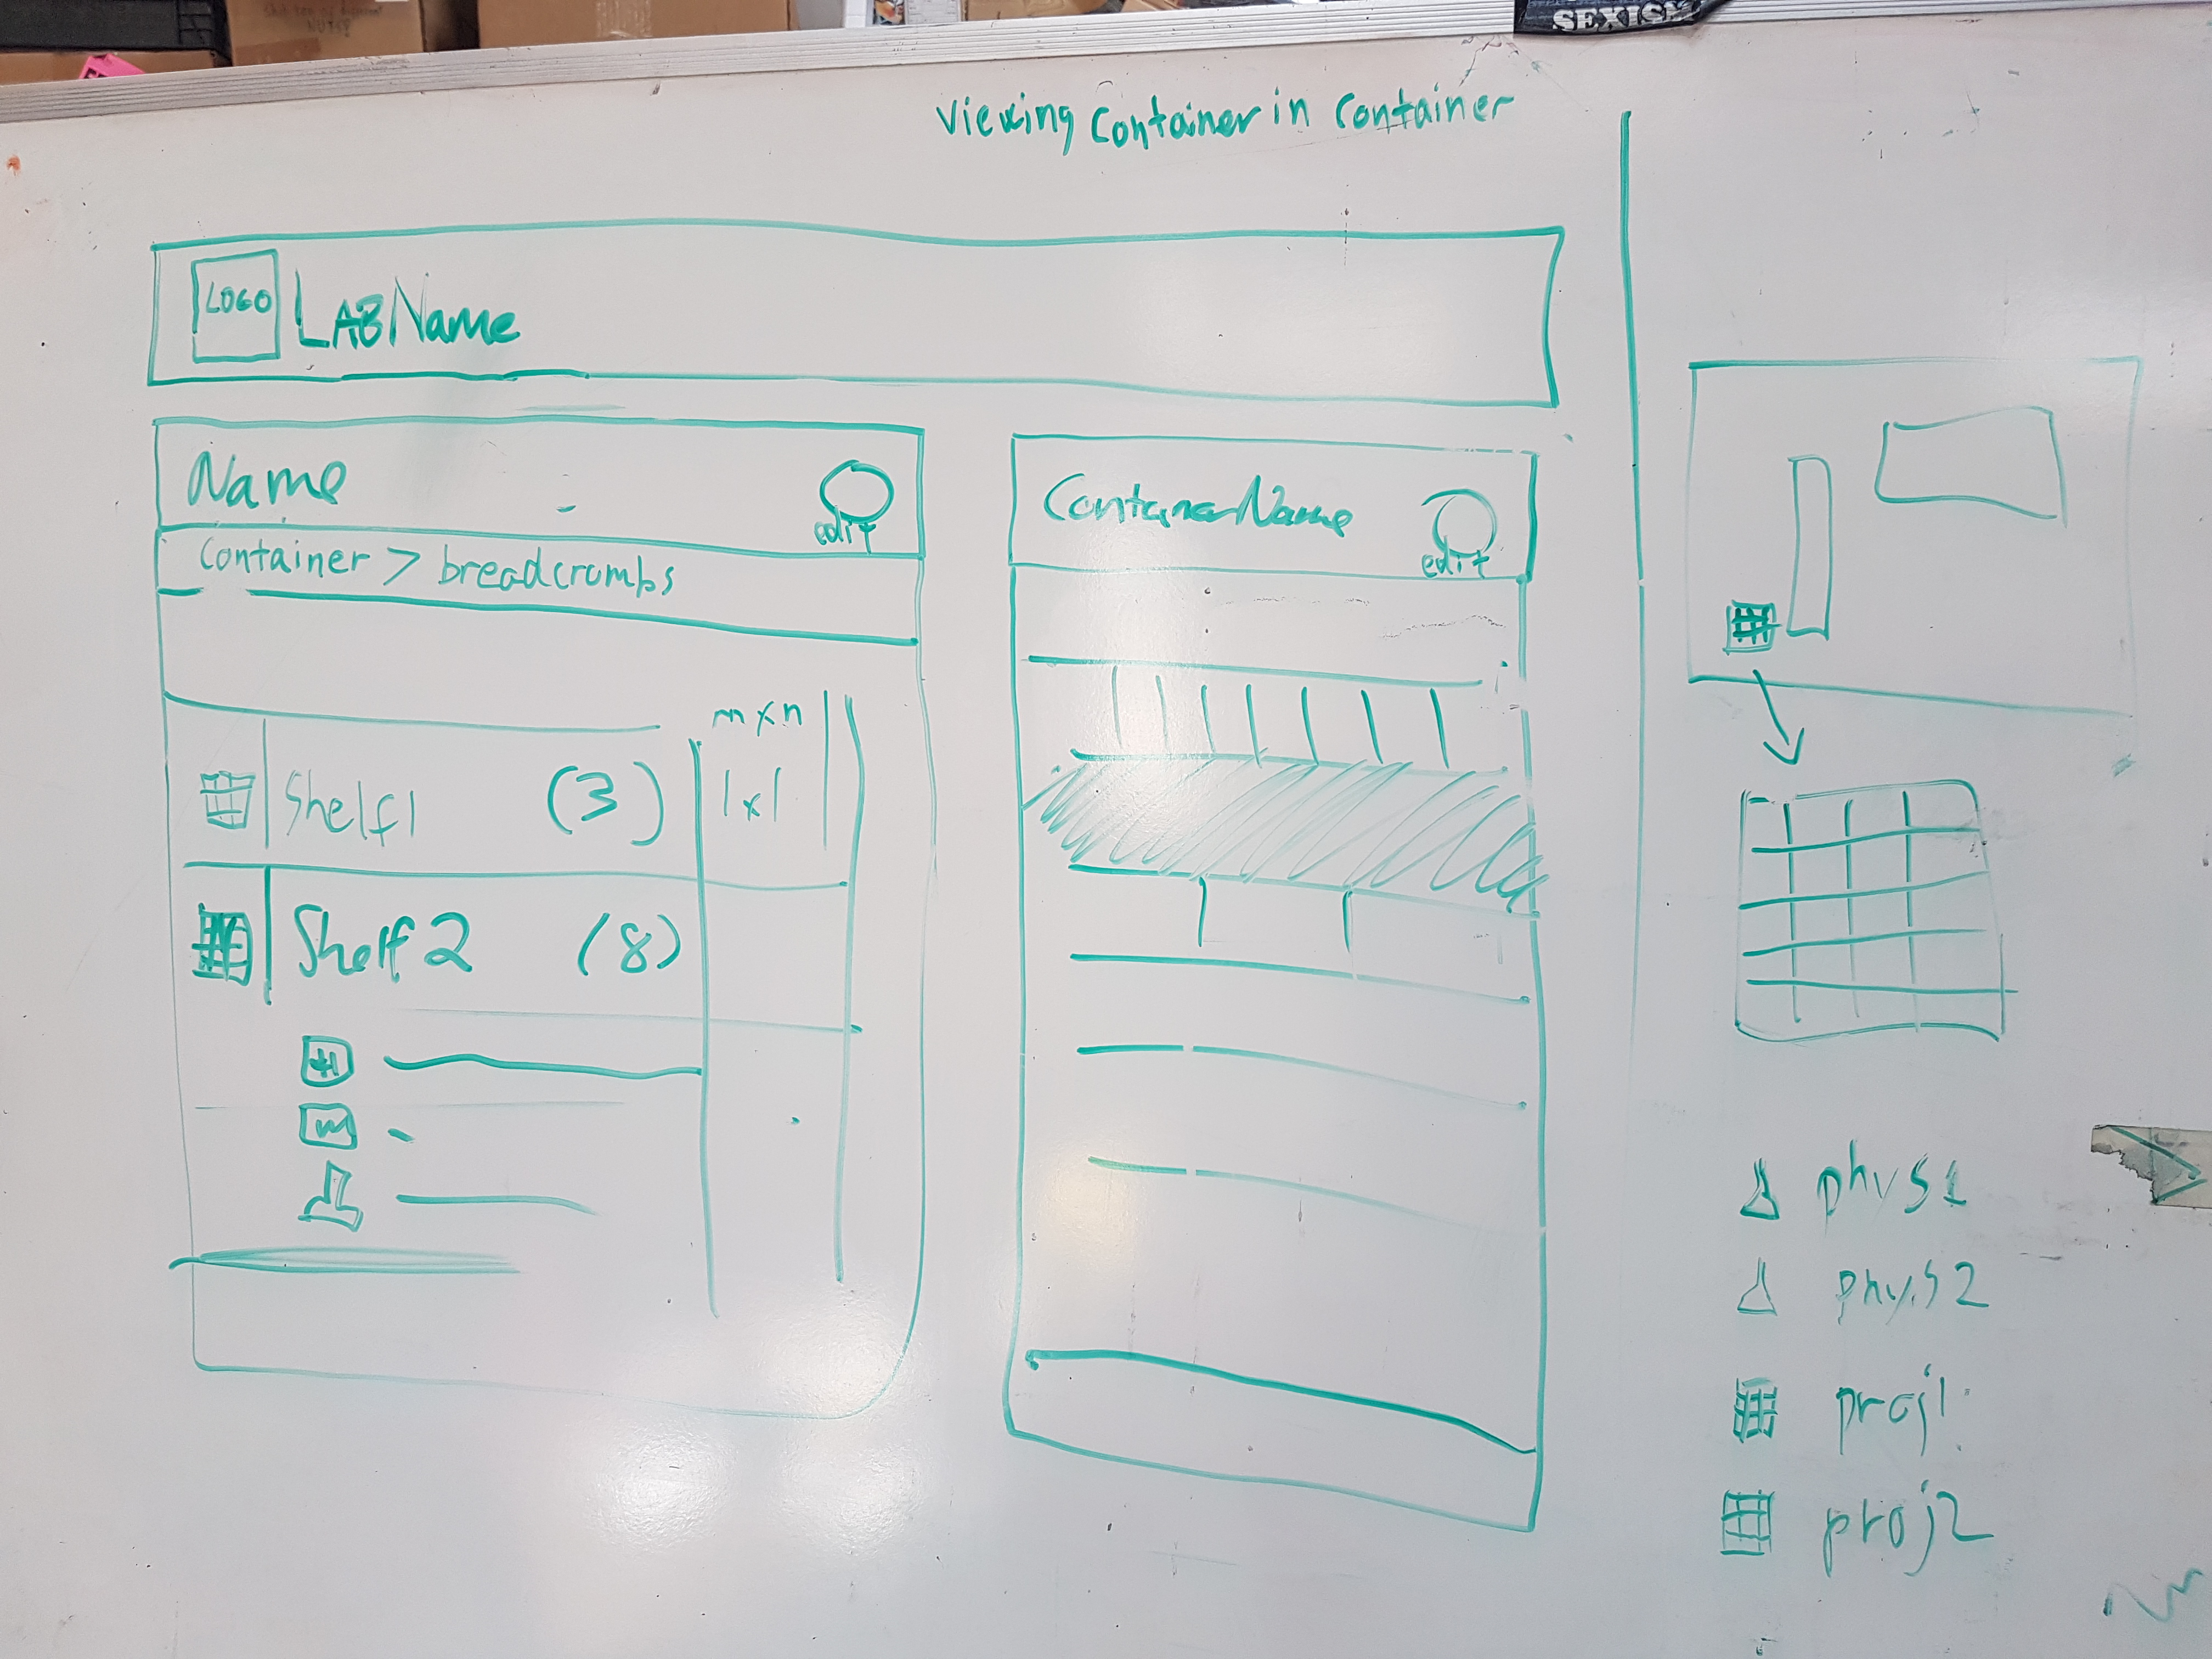 SEXISM
Viewing Container in Container
LOGO
LAB Name
Name
edit
Container > breadcrumbs
m x n
Shelf1 (3) 1x1
Shelf 2 (8)
Container Name
edit
phys1
phys2
proj1
proj2